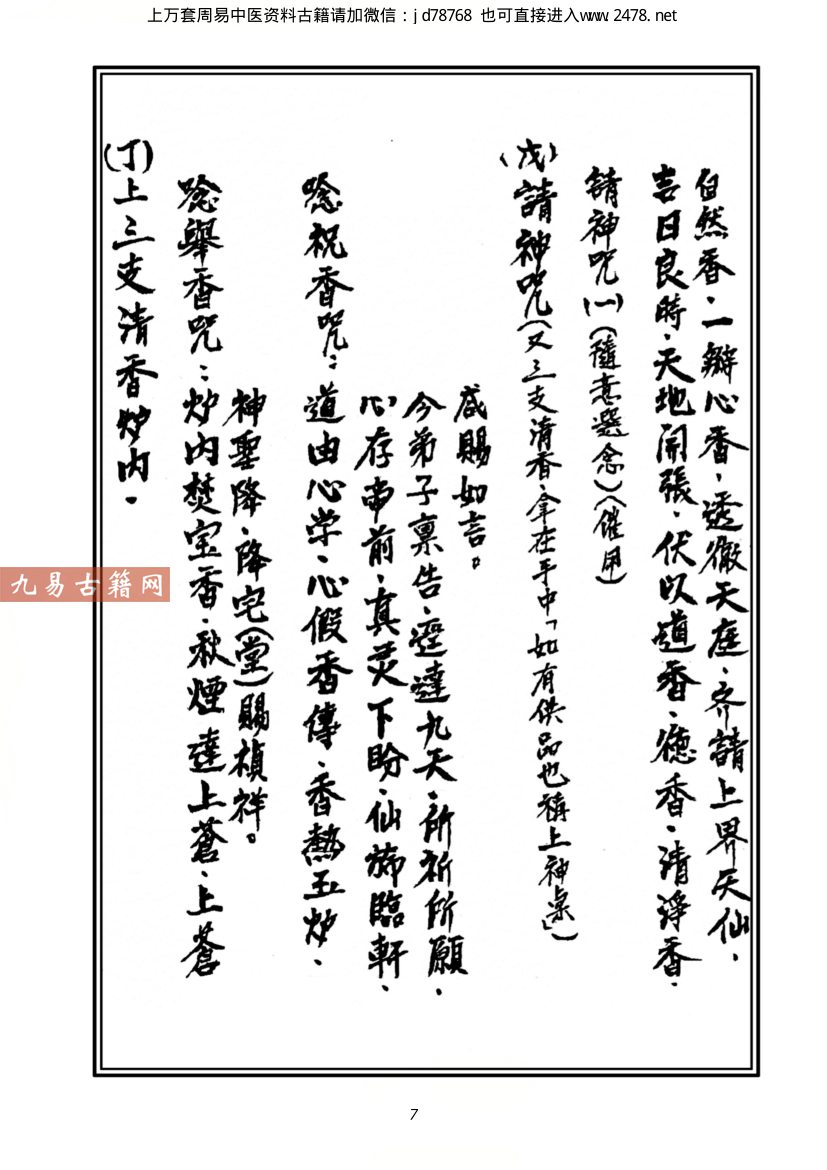 上万套周易中医资料古籍请加微信：jd78768 也可直接进入www.2478.net
(丁)上三支清香炉内。
唸舉香咒：炉内焚宝香、秋煙達上蒼、上蒼
神聖降、降宅(堂)賜禎祥。
唸祝香咒：道由心学、心假香傳、香熱玉炉、
心存帝前、真灵下盼、仙旆臨軒、
今弟子禀告、逕達九天、所祈所願、
咸賜如言。
(戊)請神咒(又三支清香、拿在手中「如有供品也稿上神桌」)
請神咒(一)(隨意選念)(催用)
吉日良時、天地開張、伏以道香、德香、清淨香、
自然香、一瓣心香、透徹天庭、齐請上界天仙、
九易古籍网
7